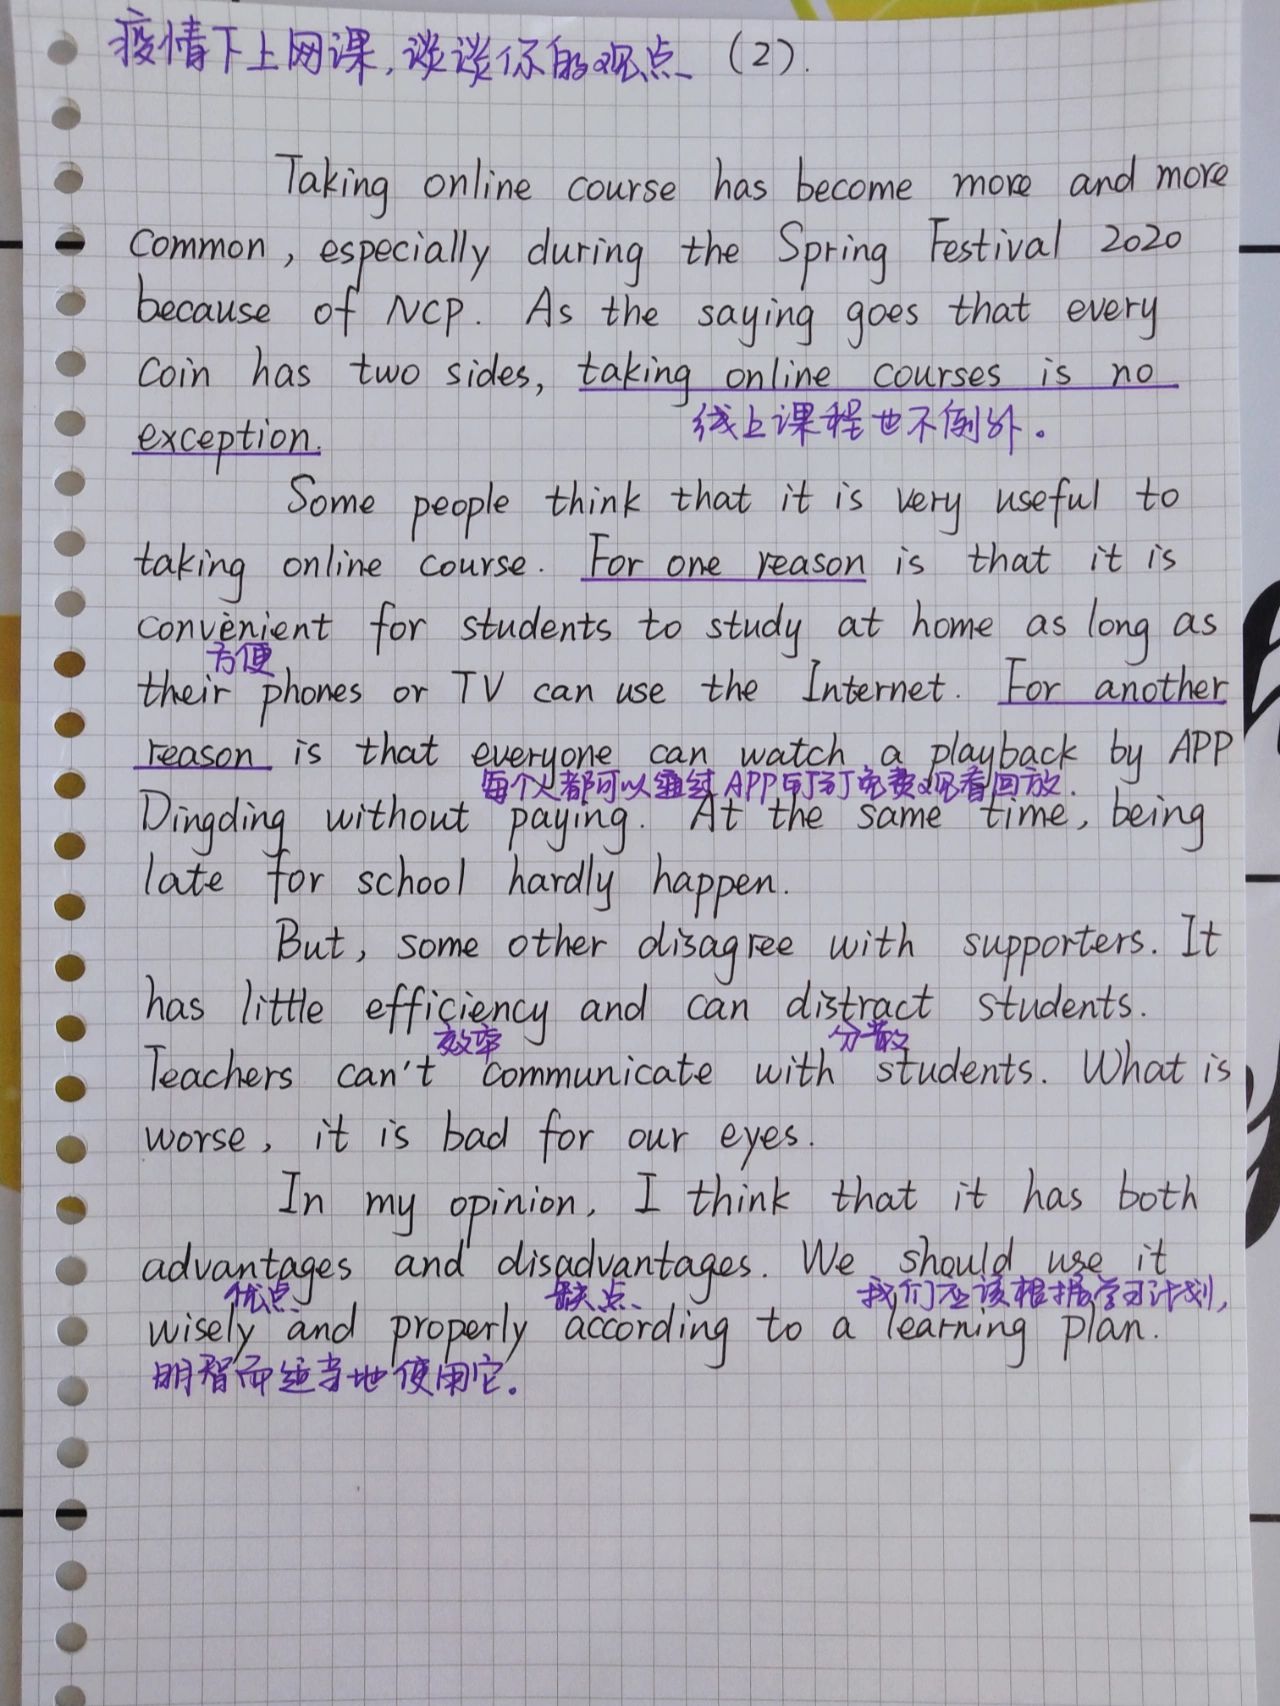 疫情下上网课,谈谈你的观点 (2).
Taking online course has become more and more
common, especially during the Spring Festival 2020
because of NCP. As the saying goes that every
coin has two sides, taking online courses is no
线上课程也不例外。
exception.
Some people think that it is very useful to
taking online course. For one reason is that it is
convenient for students to study at home as long as
方便
their phones or TV can use the Internet. For another
reason is that everyone can watch a playback by APP
每个人都可以通过APP钉钉免费观看回放.
Dingding without paying. At the same time, being
late for school hardly happen.
But, some other disagree with supporters. It
has little efficiency and can distract students.
效率 分散
Teachers can't communicate with students. What is
worse, it is bad for our eyes.
In my opinion, I think that it has both
advantages and disadvantages. We should use it
优点 缺点 我们应该根据学习计划,
wisely and properly according to a learning plan.
明智而适当地使用它。